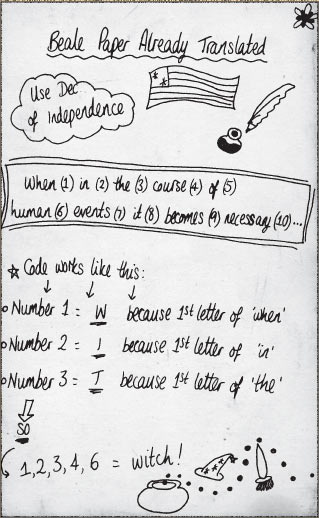 Beale Paper Already Translated
Use Dec.
of Independence
When (1) in (2) the (3) course (4) of (5)
human (6) events (7) it (8) becomes (9) necessary (10)...
Code works like this:
Number 1 = W because 1st letter of 'when'
Number 2 = I because 1st letter of 'in'
Number 3 = T because 1st letter of 'the'
SO
1,2,3,4,6 = witch!